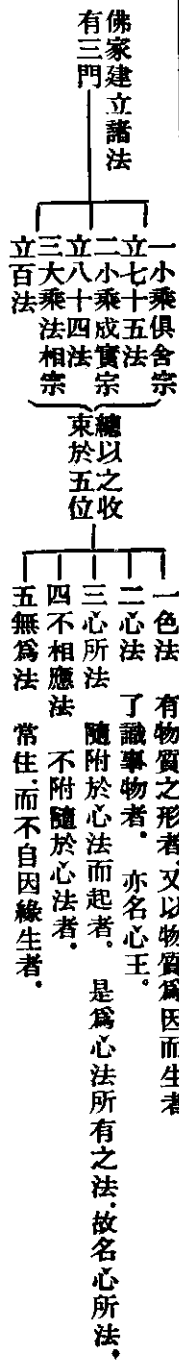 佛家建立諸法
有三門
一小乘俱舍宗
立七十五法
二小乘成實宗
立八十四法
三大乘法相宗
立百法
總以之收
束於五位
一色法 有物質之形者、又以物質爲因而生者
二心法 了識事物者. 亦名心王.
三心所法 隨附於心法而起者. 是爲心法所有之法.故名心所法.
四不相應法 不附隨於心法者.
五無爲法 常住.而不自因緣生者.